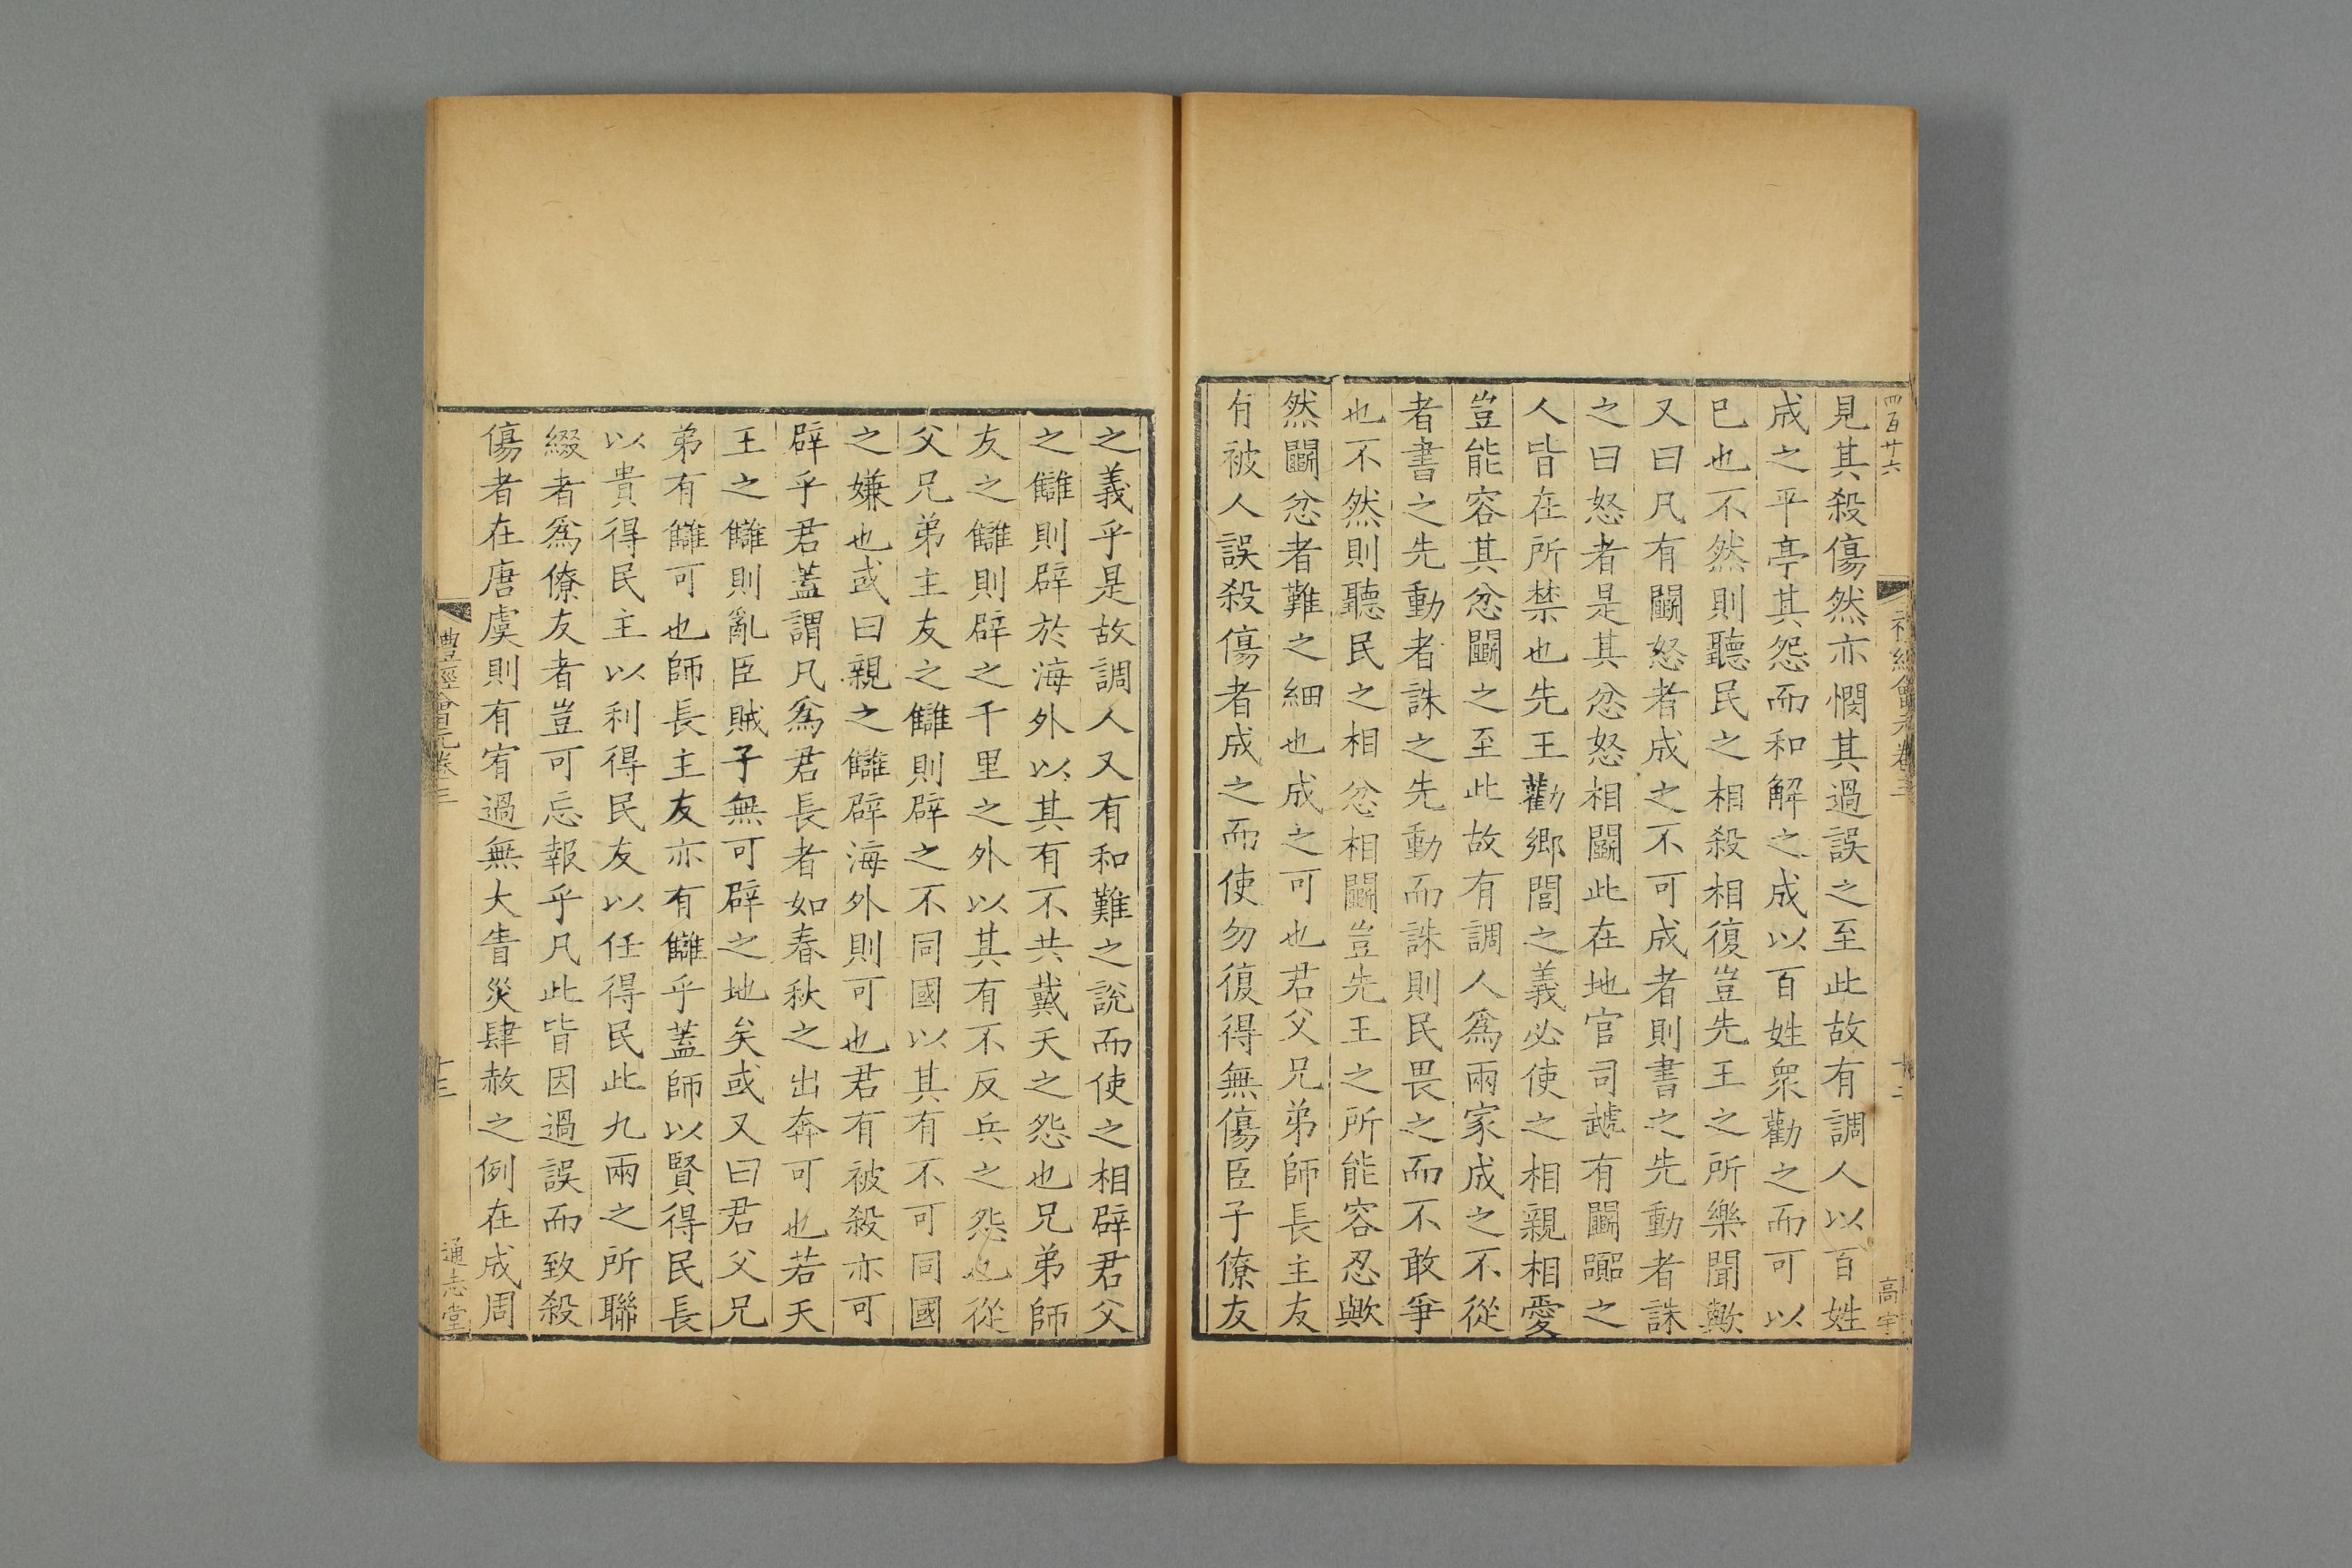 四百廿六
見其殺傷然亦憫其過誤之至此故有調人以百姓
成之平亭其怨而和解之成以百姓衆勸之而可以
已也不然則聽民之相殺相復豈先王之所樂聞歟
又曰凡有鬬怒者成之不可成者則書之先動者誅
之曰怒者是其忿怒相鬬此在地官司虣有鬬嚻之
人皆在所禁也先王勸鄉閭之義必使之相親相愛
豈能容其忿鬬之至此故有調人爲兩家成之不從
者書之先動者誅之先動而誅則民畏之而不敢爭
也不然則聽民之相忿相鬬豈先王之所能容忍歟
然鬬忿者難之細也成之可也君父兄弟師長主友
有被人誤殺傷者成之而使勿復得無傷臣子僚友
禮經會元卷三
十二
高宇
之義乎是故調人又有和難之說而使之相辟君父
之讎則辟於海外以其有不共戴天之怨也兄弟師
友之讎則辟之千里之外以其有不反兵之怨也從
父兄弟主友之讎則辟之不同國以其有不可同國
之嫌也或曰親之讎辟海外則可也君有被殺亦可
辟乎君蓋謂凡爲君長者如春秋之出奔可也若天
王之讎則亂臣賊子無可辟之地矣或又曰君父兄
弟有讎可也師長主友亦有讎乎蓋師以賢得民長
以貴得民主以利得民友以任得民此九兩之所聯
綴者爲僚友者豈可忘報乎凡此皆因過誤而致殺
傷者在唐虞則有宥過無大眚災肆赦之例在成周
禮經會元卷三
十三
通志堂